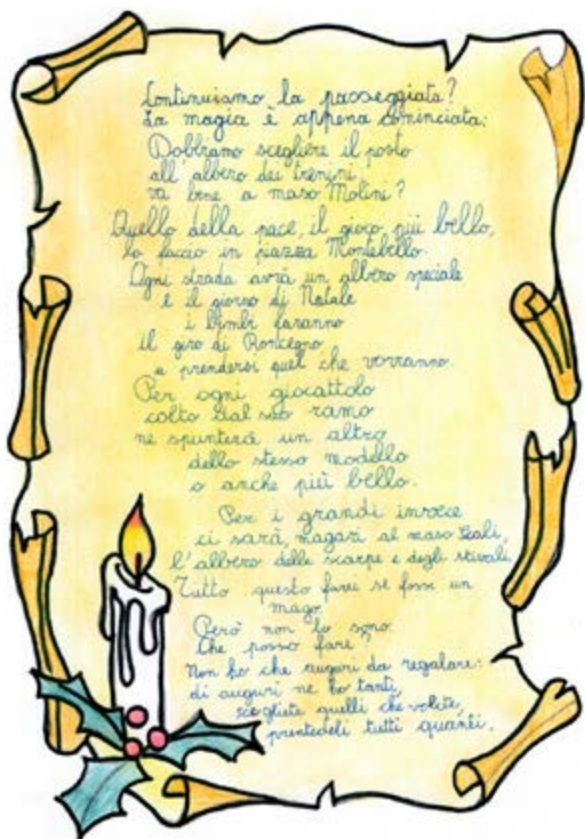 Continuiamo la passeggiata?
La magia è appena cominciata:
Dobbiamo scegliere il posto
all'albero dei trenini
va bene a maso Molini?
Quello della pace, il gioco più bello,
lo faccio in piazza Montebello.
Ogni strada avrà un albero speciale
e il giorno di Natale
i bimbi faranno
il giro di Roncegno
a prendersi quel che vorranno.
Per ogni giocattolo
colto dal suo ramo
ne spunterà un altro
dello stesso modello
o anche più bello.
Per i grandi invece
ci sarà, magari al maso
l'albero delle scarpe e degli stivali.
Tutto questo farei se fossi un
mago.
Però non lo sono.
Che posso fare?
Non ho che auguri da regalare:
di auguri ne ho tanti,
scegliete quelli che volete,
prendeteli tutti quanti.